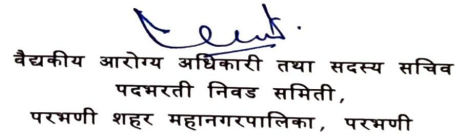 वैद्यकीय आरोग्य अधिकारी तथा सदस्य सचिव
पदभरती निवड समिती,
परभणी शहर महानगरपालिका, परभणी